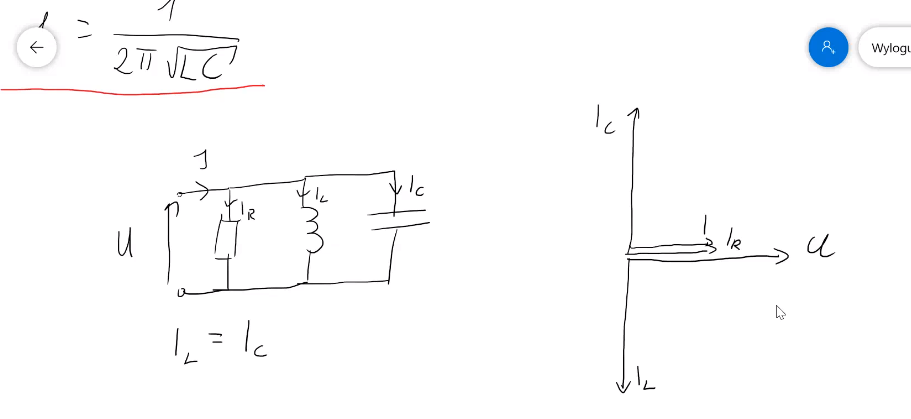 = 1 / 2π√LC
Wylogu
I
I_R I_L I_C
U
I_L = I_C
I_C
I I_R U
I_L